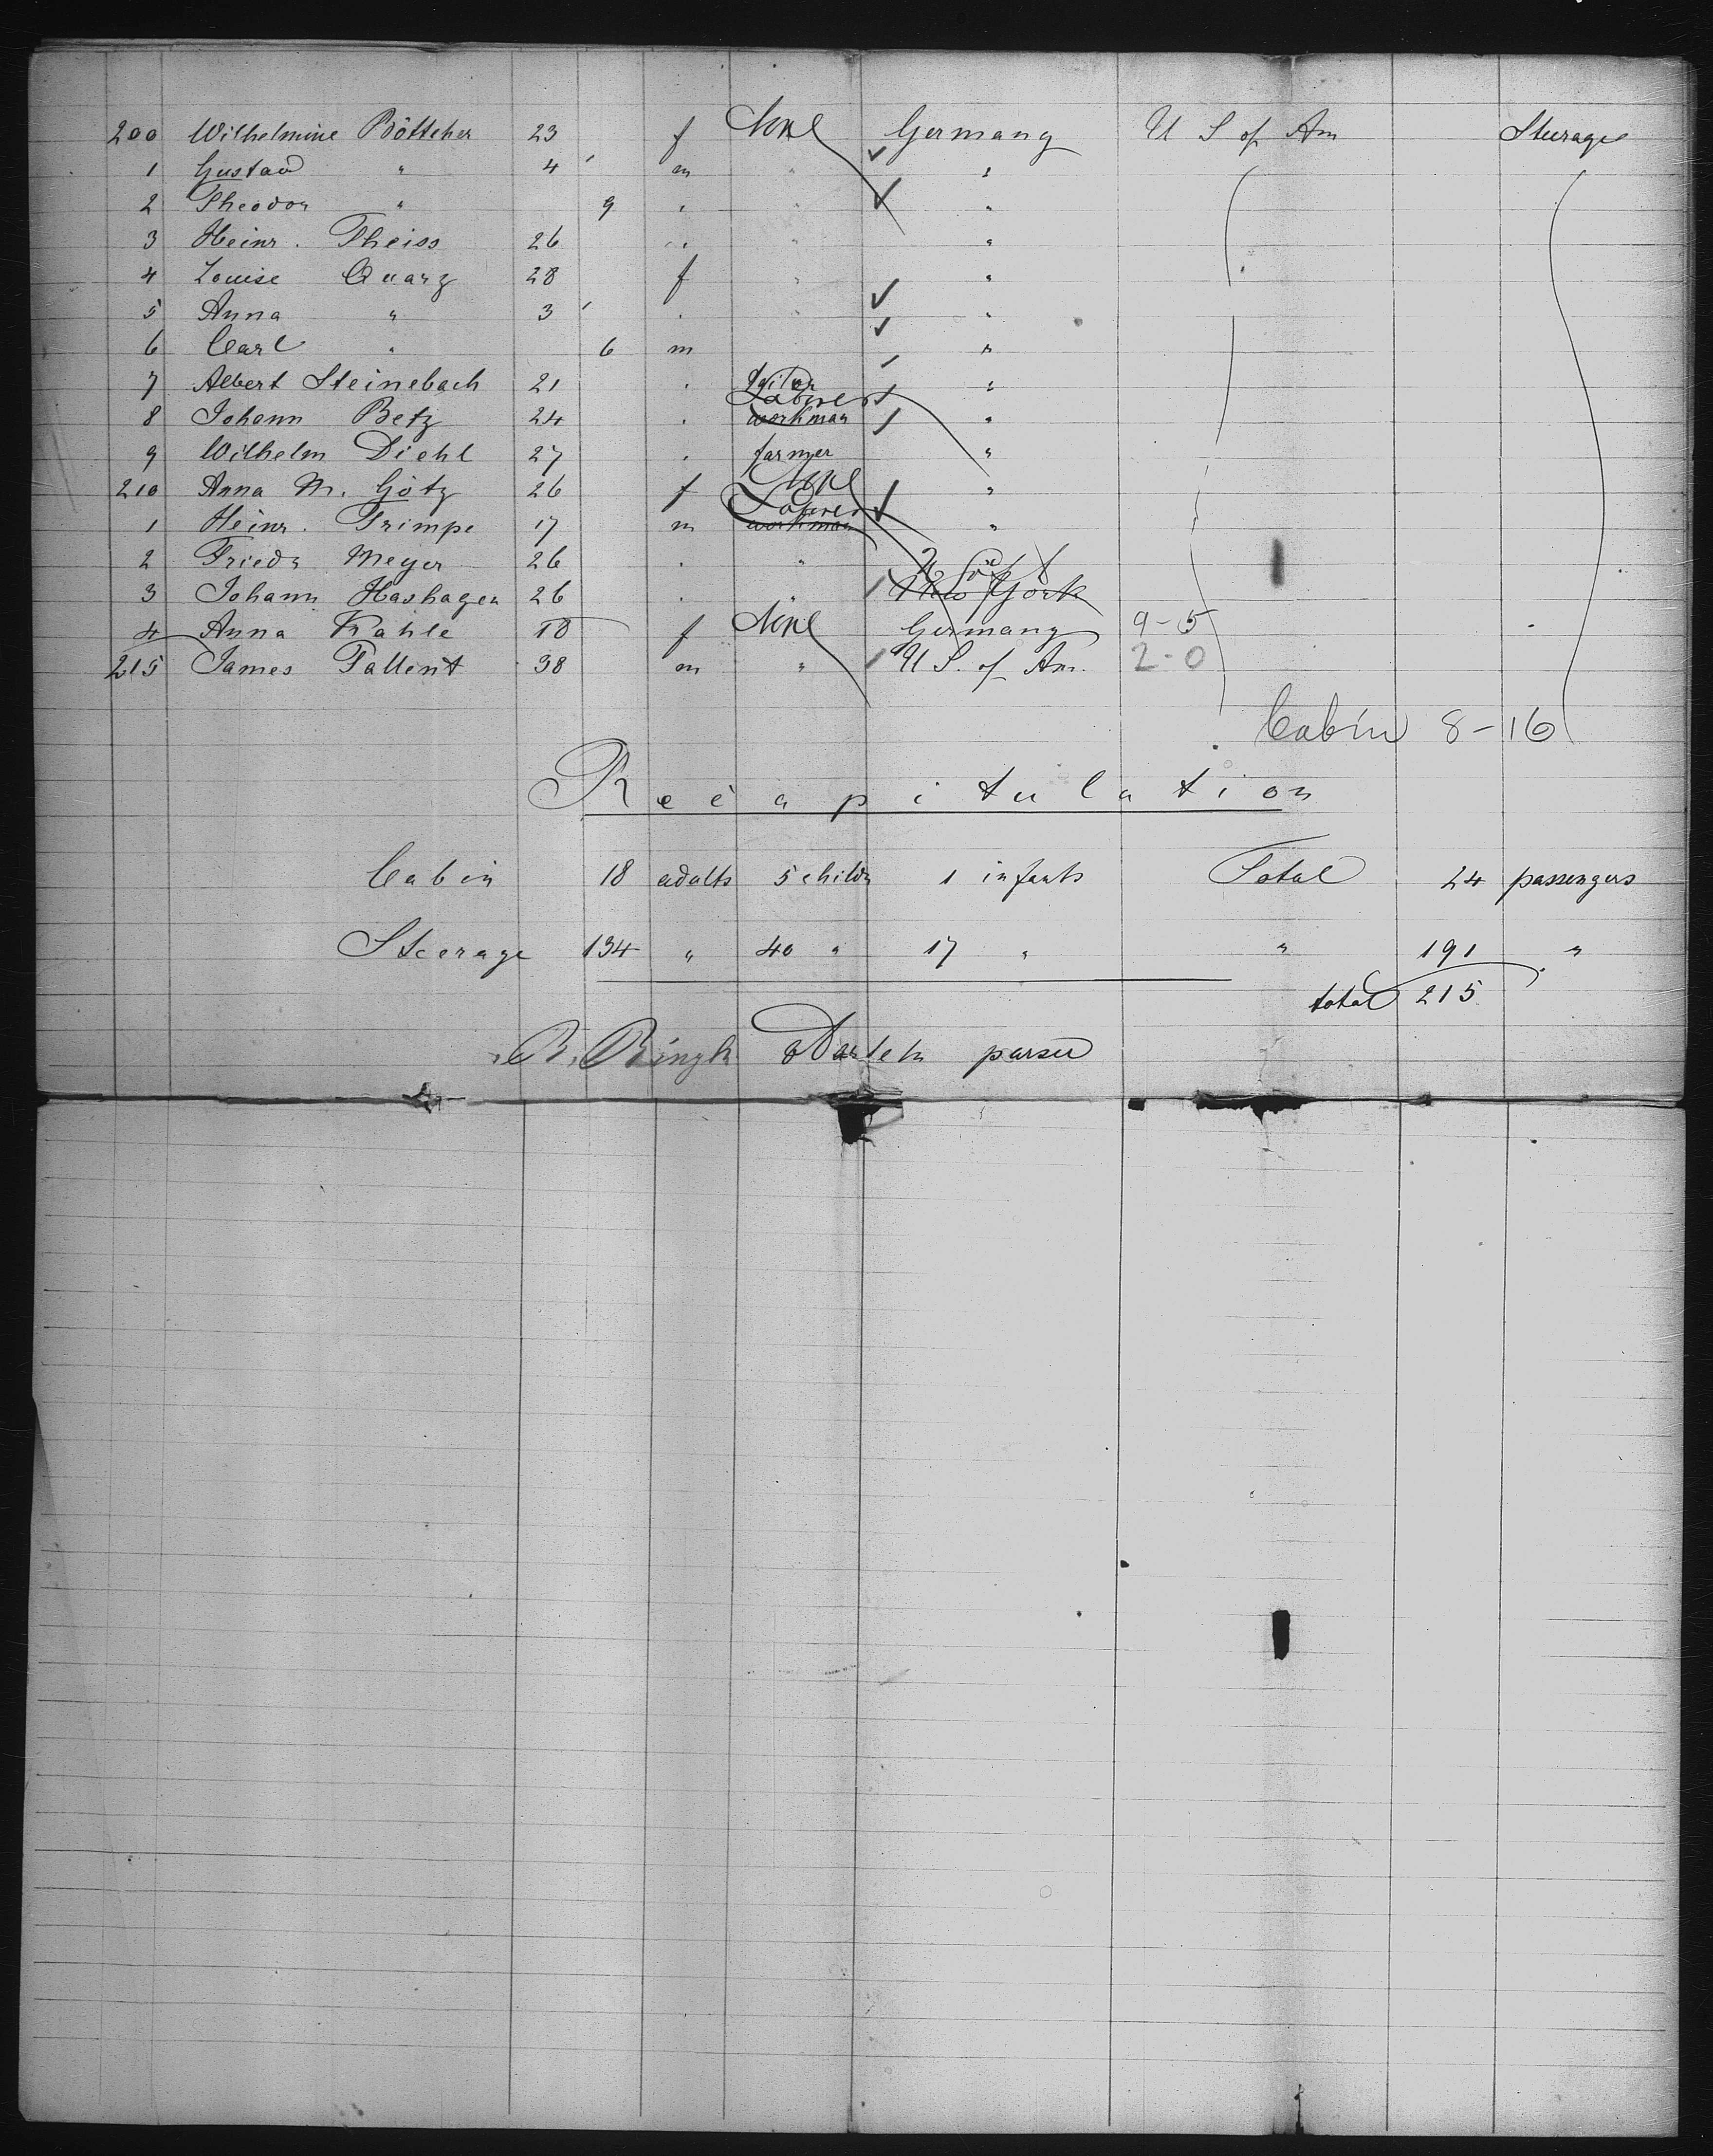 200 Wilhelmine Böttcher 23 f None Germany U S of Am Steerage
1 Gustav " 4 m " "
2 Theodor " 9 " " "
3 Heinr. Theiss 26 " " "
4 Louise Quarz 28 f " "
5 Anna " 3 " " "
6 Carl " 6 m "
7 Albert Steinebach 21 " tailor "
8 Johann Betz 24 " Laborer workman "
9 Wilhelm Diehl 27 " farmer "
210 Anna M. Götz 26 f None "
1 Heinr. Trimpe 17 m Laborer workman "
2 Friedr Meyer 26 " "
3 Johann Hashagen 26 " " New York
4 Anna Kahle 18 f None Germany 9-5
215 James Tallent 38 m " U S. of Am. 2-0
Cabin 8-16
Recapitulation
Cabin 18 adults 5 childn 1 infants Total 24 passengers
Steerage 134 " 40 " 17 " " 191 "
total 215
purser